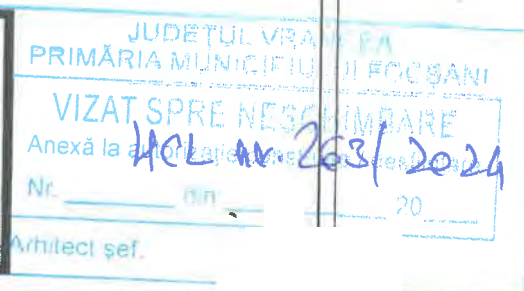 JUDEȚUL VRANCEA
PRIMĂRIA MUNICIPIULUI FOCȘANI
VIZAT SPRE NESCHIMBARE
Anexă la autorizație
HCL nr 263/2024
Nr. ______ din ______ 20____
Arhitect șef.